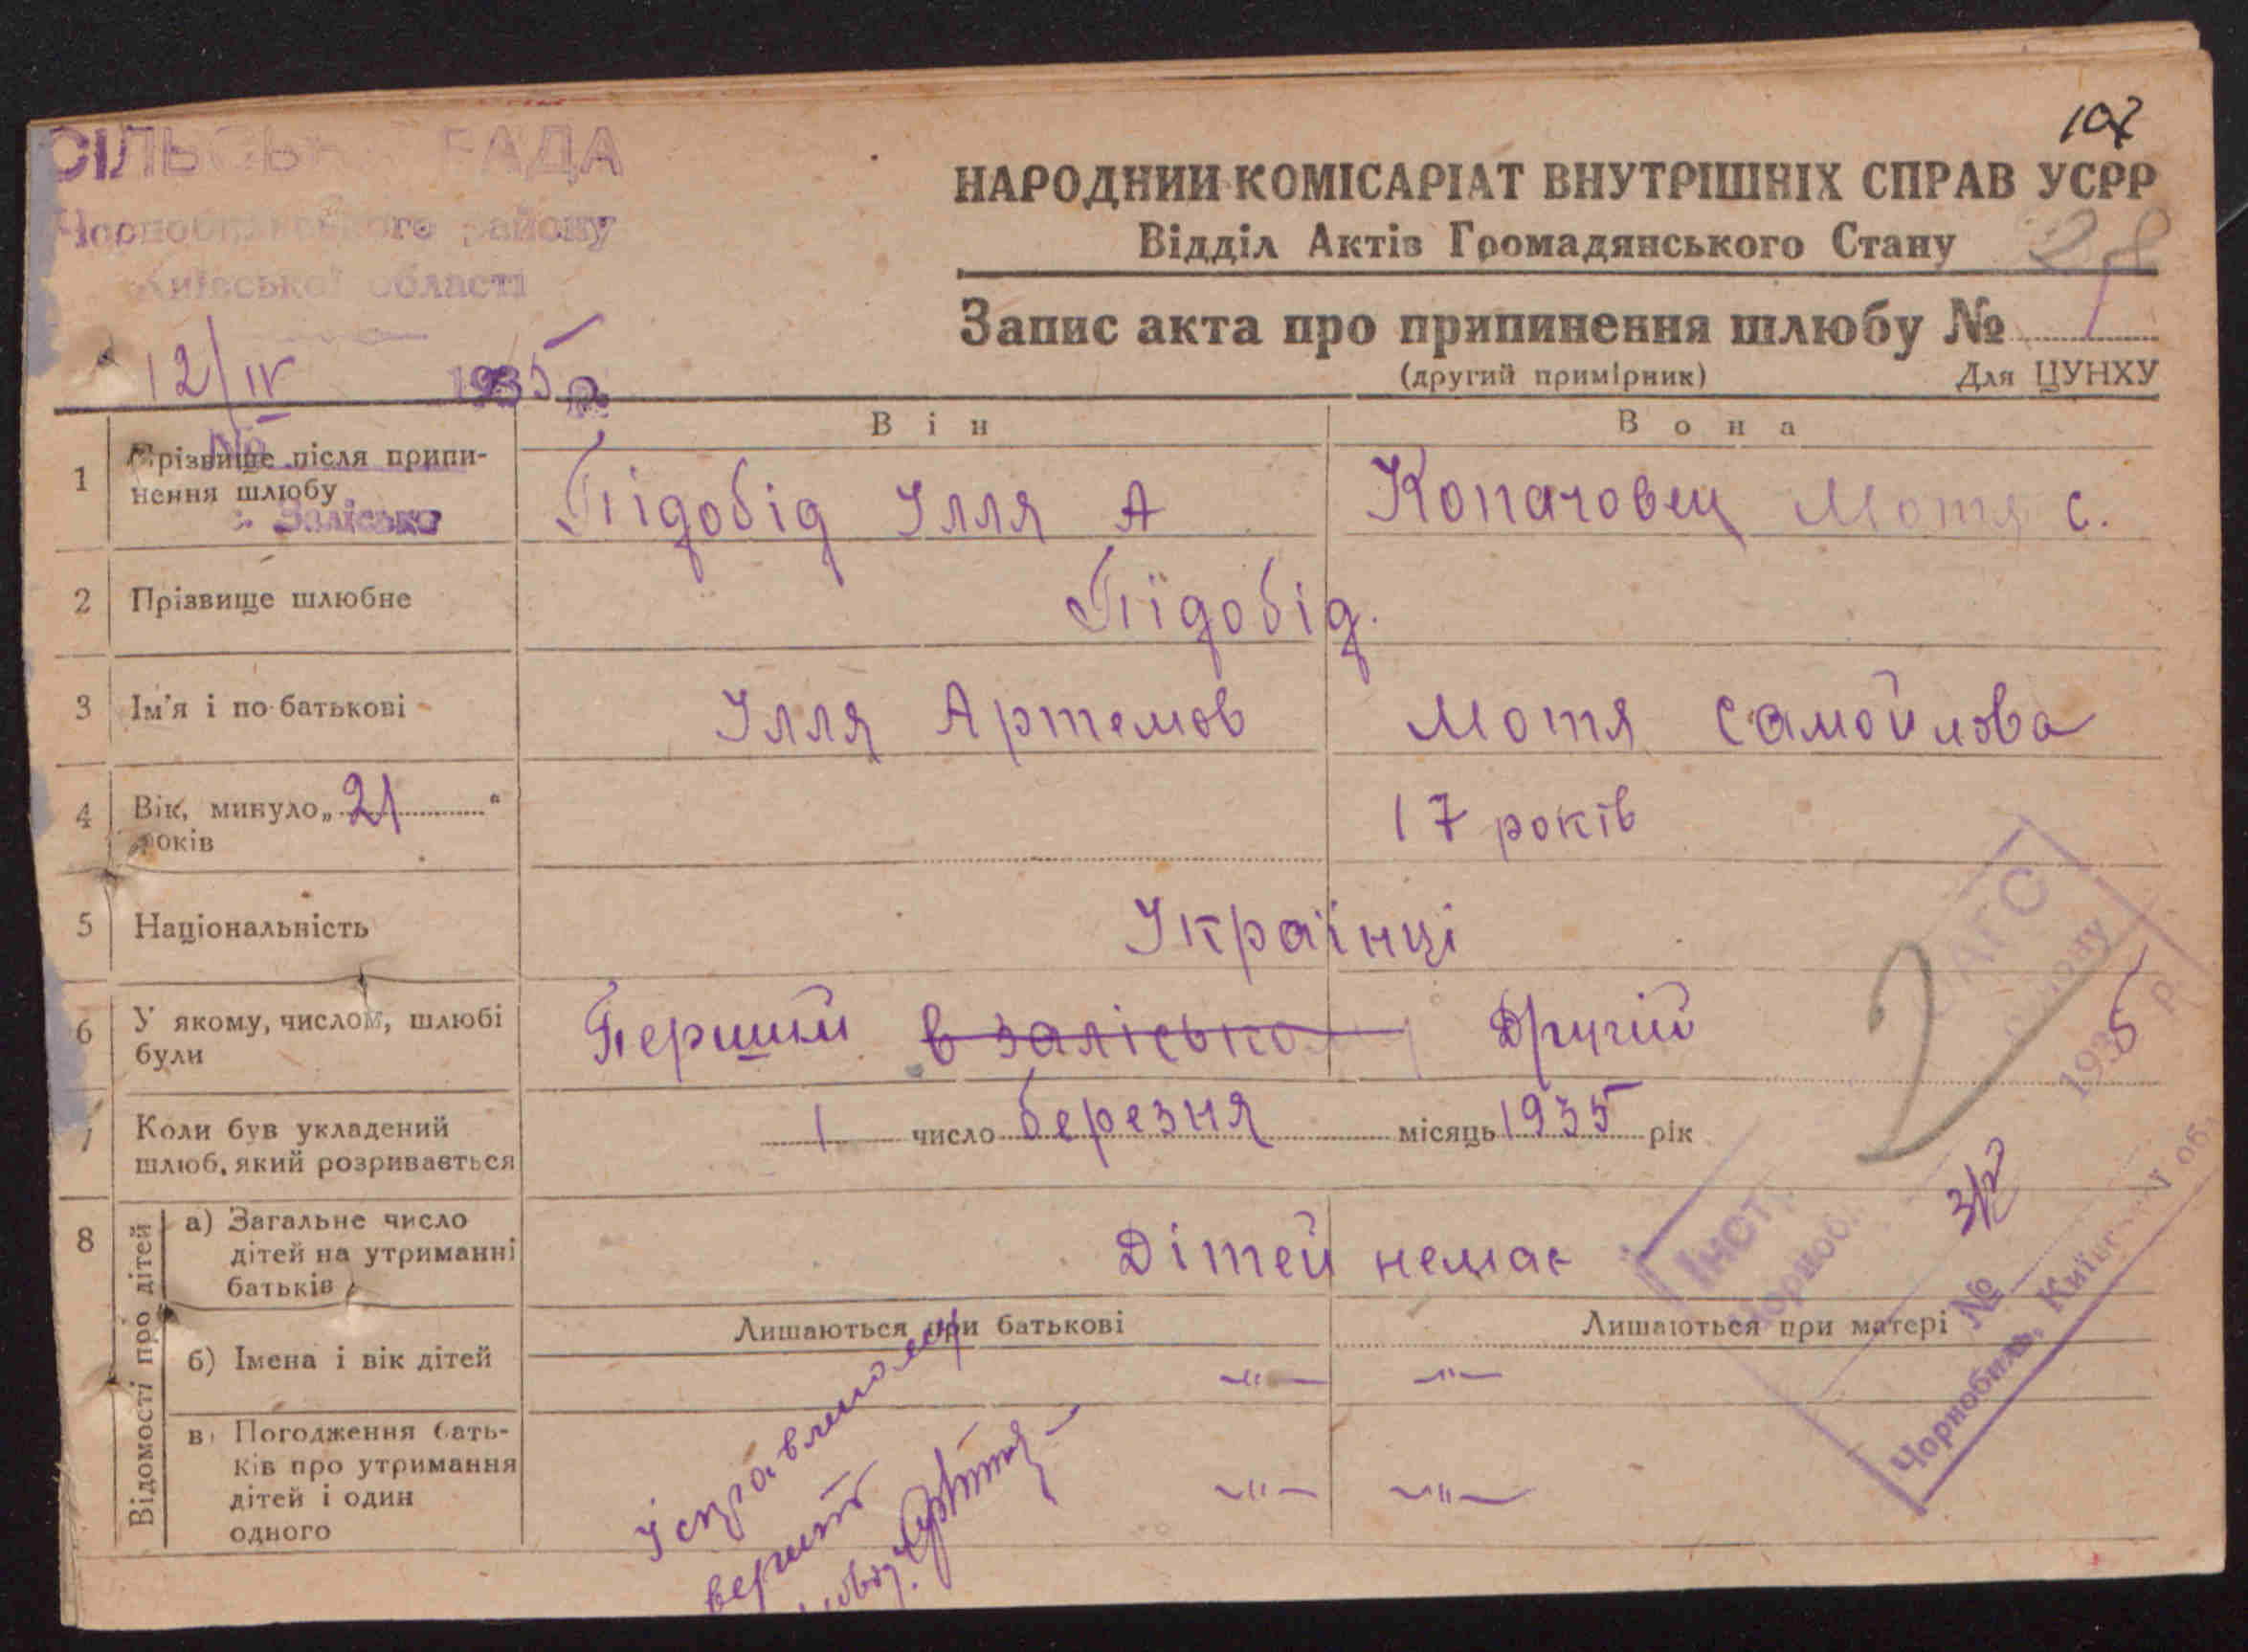 107
СІЛЬСЬКА РАДА
Чорнобильського району
Київської області
12/IV 1935 р.
№
с. Залісько
НАРОДНИЙ КОМІСАРІАТ ВНУТРІШНІХ СПРАВ УСРР
Відділ Актів Громадянського Стану
28
Запис акта про припинення шлюбу № 1
(другий примірник) Для ЦУНХУ
Він Вона
1 Прізвище після припи-
нення шлюбу Підобід Ілля А Копачовец Мотя С.
2 Прізвище шлюбне Підобід.
3 Ім'я і по-батькові Ілля Артемов Мотя Самойлова
4 Вік, минуло „21“
років 17 років
5 Національність Українці
6 У якому, числом, шлюбі
були Перший в залісько Другій
7 Коли був укладений
шлюб, який розривається 1 число березня місяць 1935 рік
8 Відомості про дітей
а) Загальне число
дітей на утриманні
батьків Дітей немає
Лишаються при батькові Лишаються при матері
б) Імена і вік дітей —"— —"—
в) Погодження бать-
ків про утримання
дітей і один
одного —"— —"—
Інст. РАГС
Чорноб.
2
1935 р.
№
Чорнобиль, Київ об.